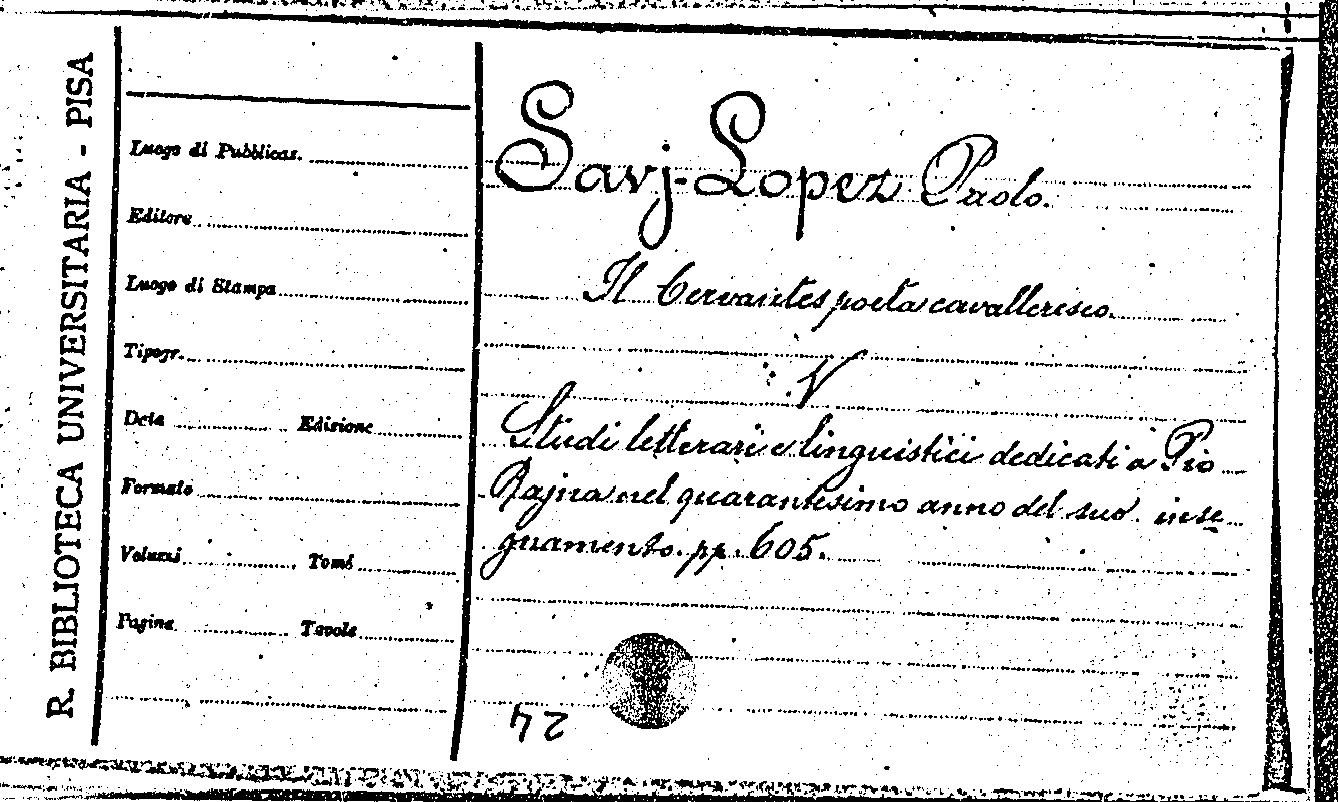 R. BIBLIOTECA UNIVERSITARIA - PISA
Luogo di Pubblicaz.
Editore
Luogo di Stampa
Tipogr.
Data Edizione
Formato
Volumi Tomi
Pagine Tavole
Savj-Lopez Paolo.
Il Cervantes poeta cavalleresco.
V
Studi letterari e linguistici dedicati a Pio
Rajna nel quarantesimo anno del suo inse
gnamento. pp. 605.
24